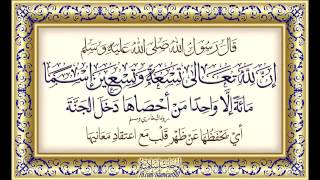 قَالَ رَسُولُ اللهِ صَلَّى اللهُ عَلَيْهِ وَسَلَّمَ
إِنَّ لِلهِ تَعَالَى تِسْعَةً وَتِسْعِينَ اسْمًا
مِائَةً إِلَّا وَاحِدًا مَنْ أَحْصَاهَا دَخَلَ الْجَنَّةَ
رواه البخاري ومسلم
أَيْ حَفِظَهَا عَنْ ظَهْرِ قَلْبٍ مَعَ اعْتِقَادِ مَعَانِيهَا